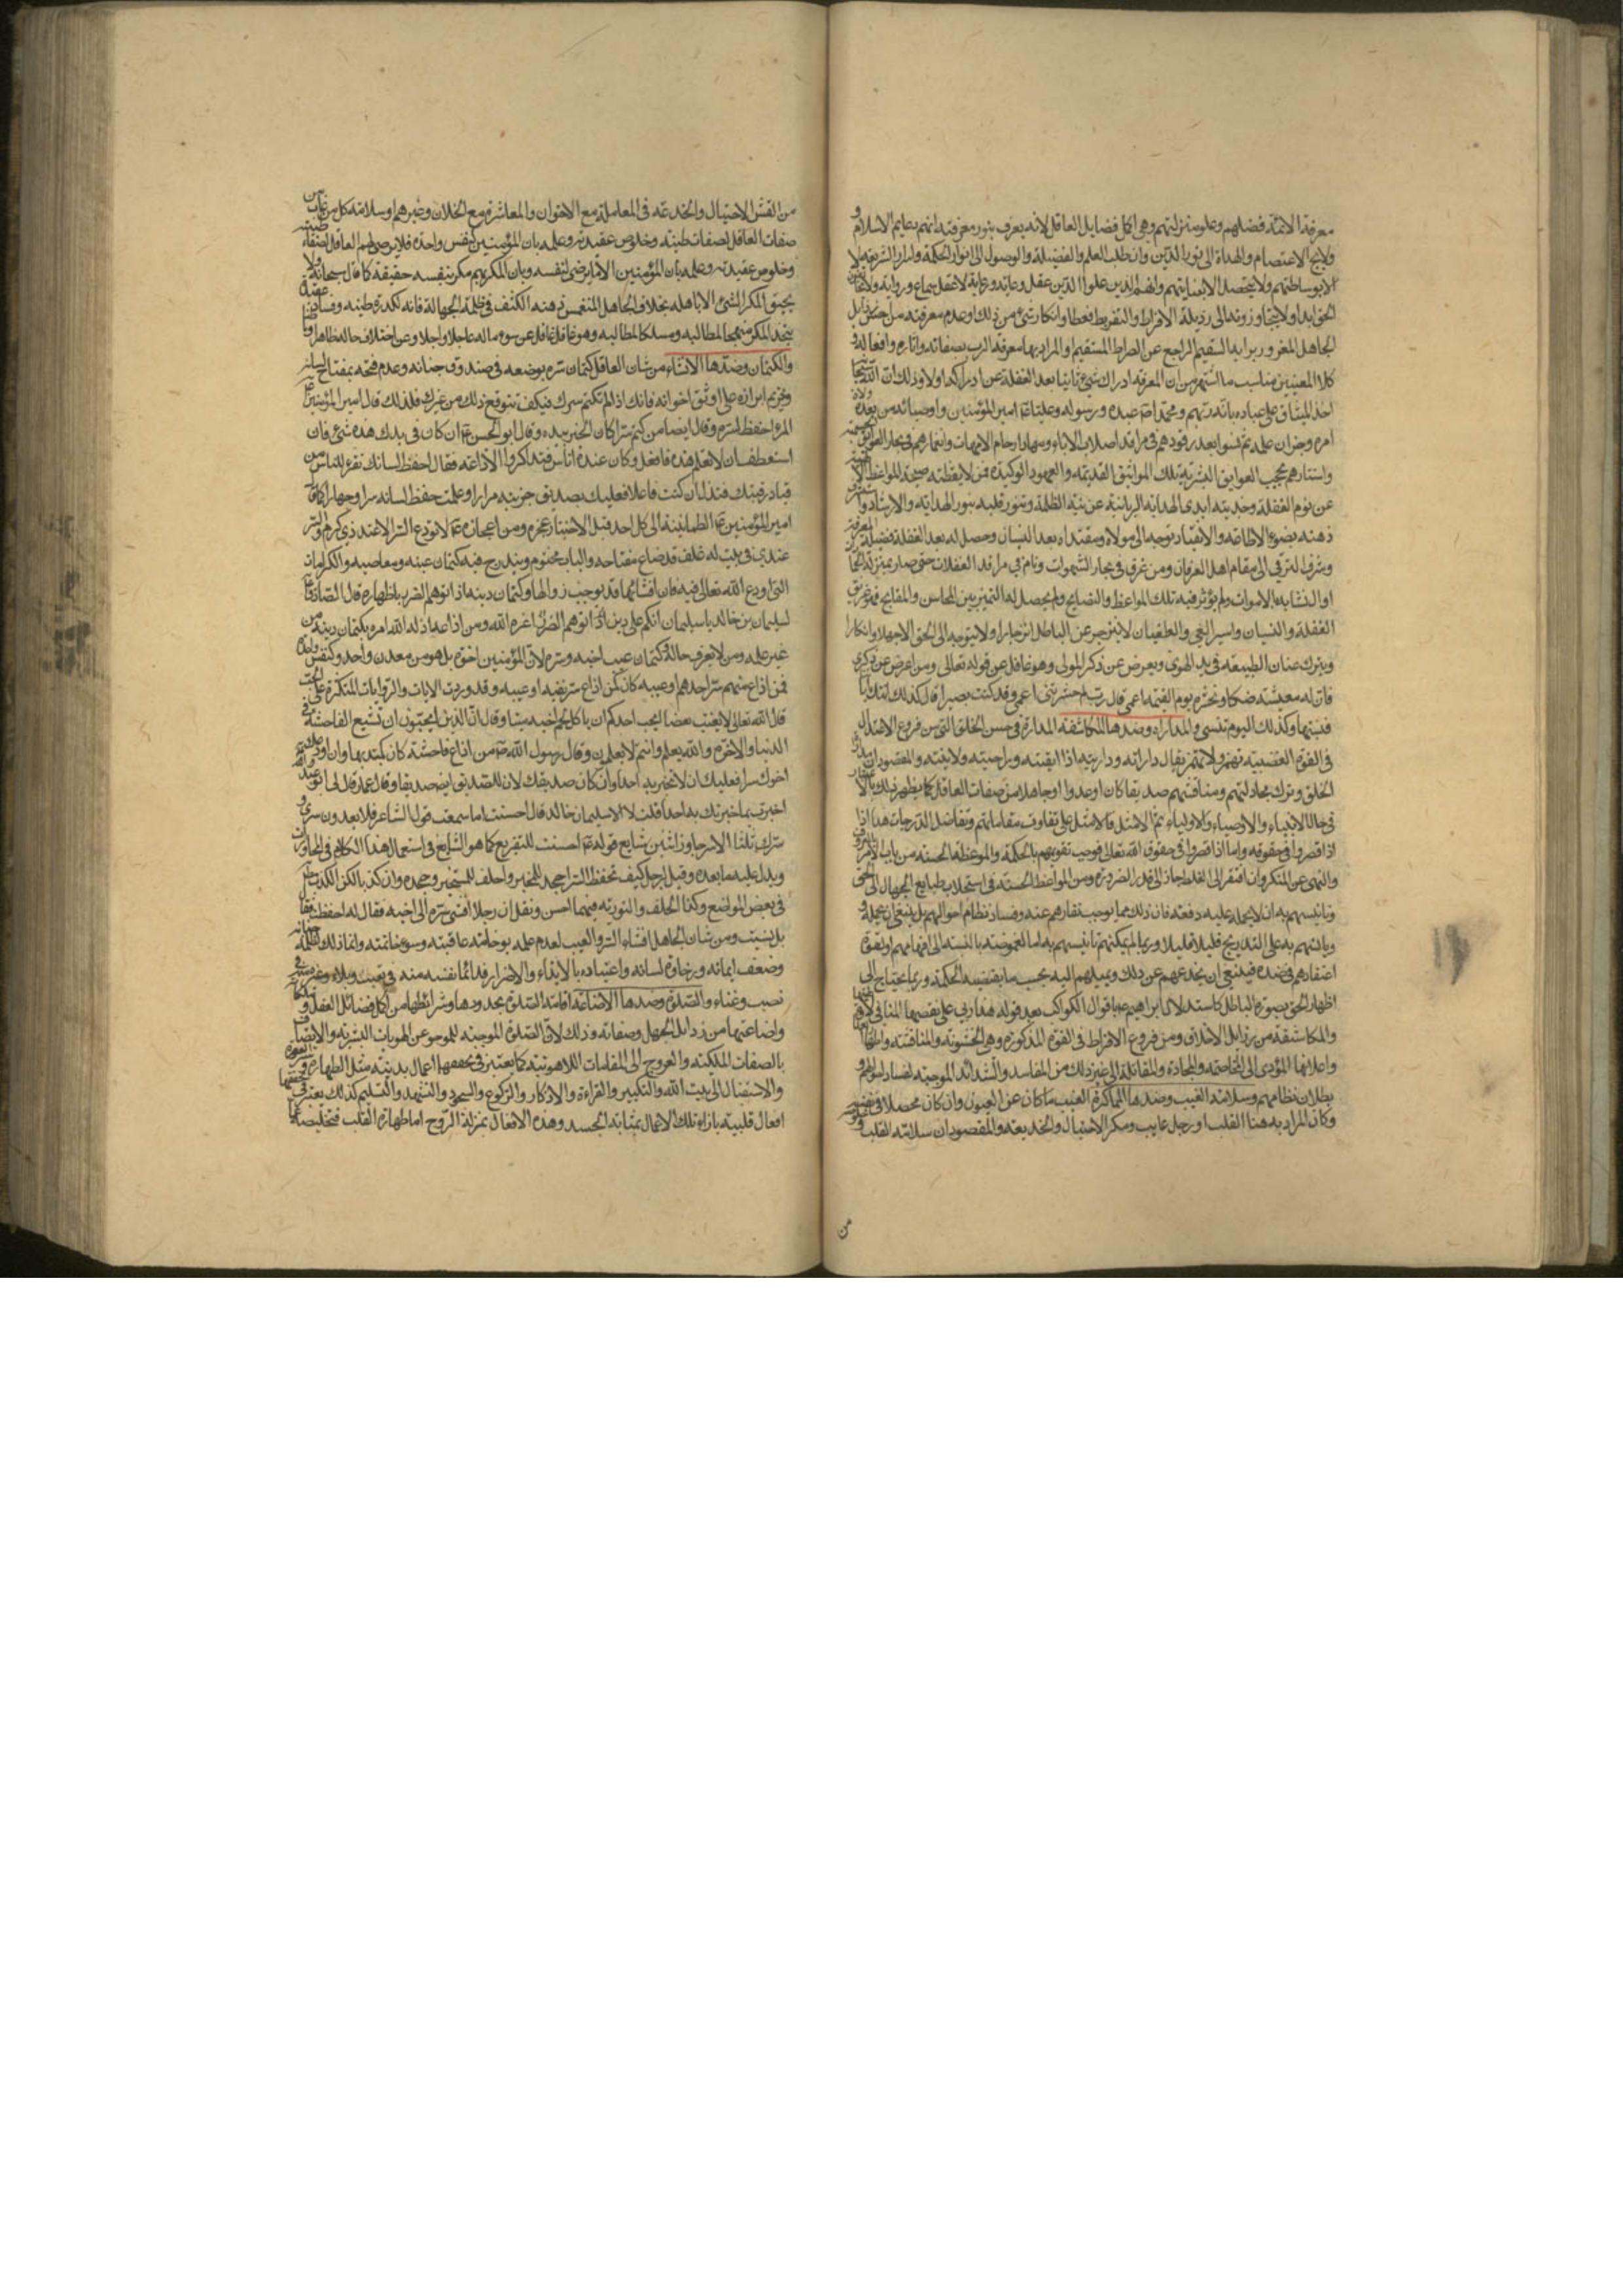 معرفة الائمة فضلهم وعلو منزلتهم وهى اكل فضايل العاقل لانه يعرف بنور معرفته انهم دعايم الاسلام و
ولايج الاعتصام والهداة الى نور الدين وان طلب العلم والفضيلة والوصول الى انوار الحكمة واسرار الشريعة لا
الا بوساطتهم ولا يتحصل الا بعنايتهم وانهم الذين عقلوا الدين عقل وعاية ورعاية لا عقل سماع ورواية ولا
الحق ابدا ولا يتجاوزونه الى رذيلة الافراط والتفريط قطعا وانكار شىء من ذلك او عدم معرفته من
الجاهل المغرور برايه السقيم الراجع عن الصراط المستقيم او المراد بها معرفة الرب بصفاته واثاره وافعاله و
كلا المعنيين مناسب ما اشتهر من ان المعرفة ادراك شىء ثانيا بعد الغفلة عن ادراكه اولا وذلك ان الله
اخذ الميثاق على عباده بانه ربهم ومحمدا ص عبده ورسوله وعليا ع امير المؤمنين واوصيائه من بعده ولاة
امره وخزان علمه ثم نسوا بعد رقودهم فى مراقد اصلاب الاباء ومهاد ارحام الامهات وانغمارهم فى بحار العوايق
واستتارهم بحجب العوايق البشرية تلك المواثيق القديمة والعهود الوكيدة فمن لايقظته صيحة المواعظ
عن نوم الغفلة وجذبته ايدى الهداية الربانية عن تيه الظلمة وتنور قلبه بنور الهداية والارشاد و
ذهنه بضوء الاطاعة والانقياد توجه الى مولاه ومقتداه بعد النسان وحصل له بعد الغفلة فضيلة المعرفة
وشرف له ترقى الى مقام اهل العرفان ومن غرق فى بحار الشهوات ونام فى مراقد الغفلات حتى صار بمنزلة
او التشابه بالاموات ولم يؤثر فيه تلك المواعظ والنصايح ولم يحصل له التميز بين المحاسن والمقابح فهو غريق
الغفلة والنسيان واسير الغى والطغيان لا ينزجر عن الباطل انزجارا ولا يتوجه الى الحق الا جهلا وانكارا
ويترك عنان الطبيعة فى يد الهوى ويعرض عن ذكر المولى وهو غافل عن قوله تعالى ومن اعرض عن ذكرى
فان له معيشة ضنكا ونحشره يوم القيمة اعمى قال رب لم حشرتنى اعمى وقد كنت بصيرا قال كذلك اتتك اياتنا
فنسيتها وكذلك اليوم تنسى والمداراه وضدها المكاشفة المداراة فى حسن الخلق التى من فروع الاعتدال
فى القوة الغضبية تهمز ولا تهمز يقال داراته وداريته اذا اتقيته وراجيته ولاينته والمقصود ان
الخلق وترك مجادلتهم ومناقشتهم صديقا كان او عدوا او جاهلا من صفات العاقل كما يظهر ذلك
فى حال الانبياء والاوصياء والاولياء ثم الامثل فالامثل على تفاوت مقاماتهم وتفاضل الدرجات هذا اذا
اذا قصروا فى حقوقه واما اذا قصروا فى حقوق الله تعالى فوجب تقويمهم بالحكمة والموعظة الحسنة من باب الامر
والنهى عن المنكر وان افتقر الى الغلظ جاز الى قدر الضرورة ومن المواعظ الحسنة فى استجلاب طبايع الجهال الى الحق
وتانيسهم به ان لا يحمله عليه دفعة فان ذلك مما يوجب نفارهم عنه وفساد نظام احوالهم بل ينبغى ان
ويانسهم به على التدريج قليلا قليلا وربما لم يمكنهم تانيسهم به اما لغموضه بالنسبة الى افهامهم او لقوة
اعتقادهم فى ضده فينبغى ان يخدعهم عن ذلك ويميلهم اليه بحسب ما يقتضيه الحكمة وربما يحتاج الى
اظهار الحق بصورة الباطل كاستدلال ابراهيم ع بافول الكواكب بعد قوله هذا ربى على نقصها المنافى
والمكاشفة من رذايل الاخلاق ومن فروع الافراط فى القوة المذكورة وهى الخشونة والمناقشة
واعلانها المؤدى الى المخاصمة والمجادة والمقاتلة الى غير ذلك من المفاسد والشدائد الموجبة لفساد احوالهم و
بطلان نظامهم وسلامة الغيب وضدها المماكرة الغيب ما كان عن العيون وان كان محصلا فى
وكان المراد به هنا القلب او رجل غايب ومكر الاحتيال والخديعة والمقصود ان سلامة القلب
من
من الغش الاحتيال والخدعة فى المعاملة مع الاخوان والمعاشرة مع الخلان وغيرهم او سلامة كل من غاب من
صفات العاقل لصفات طينته وخلوص عقيدته وعلمه بان المؤمنين كنفس واحدة فلا يرضى لهم العاقل
وخلوص عقيدته وعلمه بان المؤمنين الا ما يرضى لنفسه وبان المكر بهم مكر بنفسه حقيقة كما قال سبحانه ولا
يحيق المكر السيئ الا باهله بخلاف الجاهل المنغمس ذهنه الكثف فى ظلمة الجهالة فانه لكدرة طينه وفساد عقيدته
يتخذ المكر منهجا لمطالبه ومسلكا لمطالبه وهو غافل غافل عن سوء ماله عاجلا واجلا وعن اختلاف حاله ظاهرا
والكتمان وضدها الافشاء من شان العاقل كتمان سره بوضعه فى صندوق جنانه وعدم فتحه بمفتاح لسانه
وتحريم ابرازه على اوثق اخوانه فانك اذا لم تكتم سرك فكيف تتوقع ذلك من غيرك فلذلك قال امير المؤمنين
المرء احفظ لسره وقال ايضا من كتم سرا كان الخير بيده وقال ابو الحسن ع ان كان فى يدك هذه شىء فان
استعطف ان لا تعلم هذه فافعل وكان عنده اناس فتذاكروا الاذاعة فقال احفظ لسانك تعز
قياد رقبتك فتذل ان كنت فاعلا فعليك بصديق جربته مرارا وعلمت حفظ لسانه سرا وجهارا
امير المؤمنين ع الطمانينة الى كل احد قبل الاختبار عجز ومن اعجازه ع لا تودع السر الا عند ذى كرم والسر
عندى فى بيت له غلف قد ضاع مفتاحه والباب مختوم ويندرج فيه كتمان عيبه ومعاصيه والكرامات
التى اودع الله تعالى فيه فان افشائها قد يوجب زوالها وكتمان دينه اذا توهم الضرر باظهاره قال الصادق ع
لسليمان بن خالد يا سليمان انكم على دين اذا توهم الضرر اعزه الله ومن اذاعه اذله الله امره بكتمان دينه من
غير علمه ومن لا يعرف حاله وكتمان عيب اخيه وسره لان المؤمنين اخوة بل هو من معدن واحد وكنفس واحدة
فمن اذاع منهم سر احدهم او عيبه كان كمن اذاع سر نفسه او عيبه وقد وردت الايات والروايات المتكثرة على
قال الله تعالى لا يغتب بعضا ايحب احدكم ان ياكل لحم اخيه ميتا وقال ان الذين يحبون ان تشيع الفاحشة فى
الدنيا والاخرة والله يعلم وانتم لا تعلمون وقال رسول الله ص من اذاع فاحشة كان كمبتديها وان
اخوك سرا فعليك ان لا تخبر به احدا وان كان صديقك لان للصديق ايضا صديقا وقال عمار قال لى ابو عبد
اخبرت بما اخبرتك به احدا قلت لا الا سليمان خالد قال احسنت اما سمعت قول الشاعر فلا يعدون سرى و
سرك ثلثا الا سر جاوز اثنين شايع قوله ع احسنت للتقريع كما هو الشايع فى استعمال هذا الكلام فى المحاورات
ويدل عليه ما بعده وقيل لرجل كيف تحفظ السر اجحد للمخبر واحلف للمستخبر وجحده وان كذب لكن الكذب
فى بعض المواضع وكذا الحلف والتورية فيهما احسن ونقل ان رجلا افشى سره الى اخيه فقال له احفظت فقال
بل نسيت ومن شان الجاهل افشاء السر والعيب لعدم علمه بوخامة عاقبته وسوء خاتمته وانما ذلك لقلة
وضعف ايمانه ورخاوة لسانه واعتياده بالايذاء والاضرار فدائما نفسه منه فى تعب وبلاء وغيره منه فى
نصب وعناء والصلوة وضدها الاضاعة اقامة الصلوة بحدودها وشرائطها من اكل فضائل العقل و
واضاعتها من رذايل الجهل وصفاته وذلك لان الصلوة الموجبة للموجوع عن الهويات البشرية والاتصاف
بالصفات الملكية والعروج الى المقامات اللاهوتية كما يعتبر فى تحققها اعمال بدنية مثل الطهارة
والاستقبال الى بيت الله والتكبير والقراءة والاذكار والركوع والسجود والتشهد والتسليم كذلك يعتبر فى
افعال قلبية بازاء تلك الاعمال بمثابة الجسد وهذه الافعال بمنزلة الروح اما طهارة القلب فتخليصه